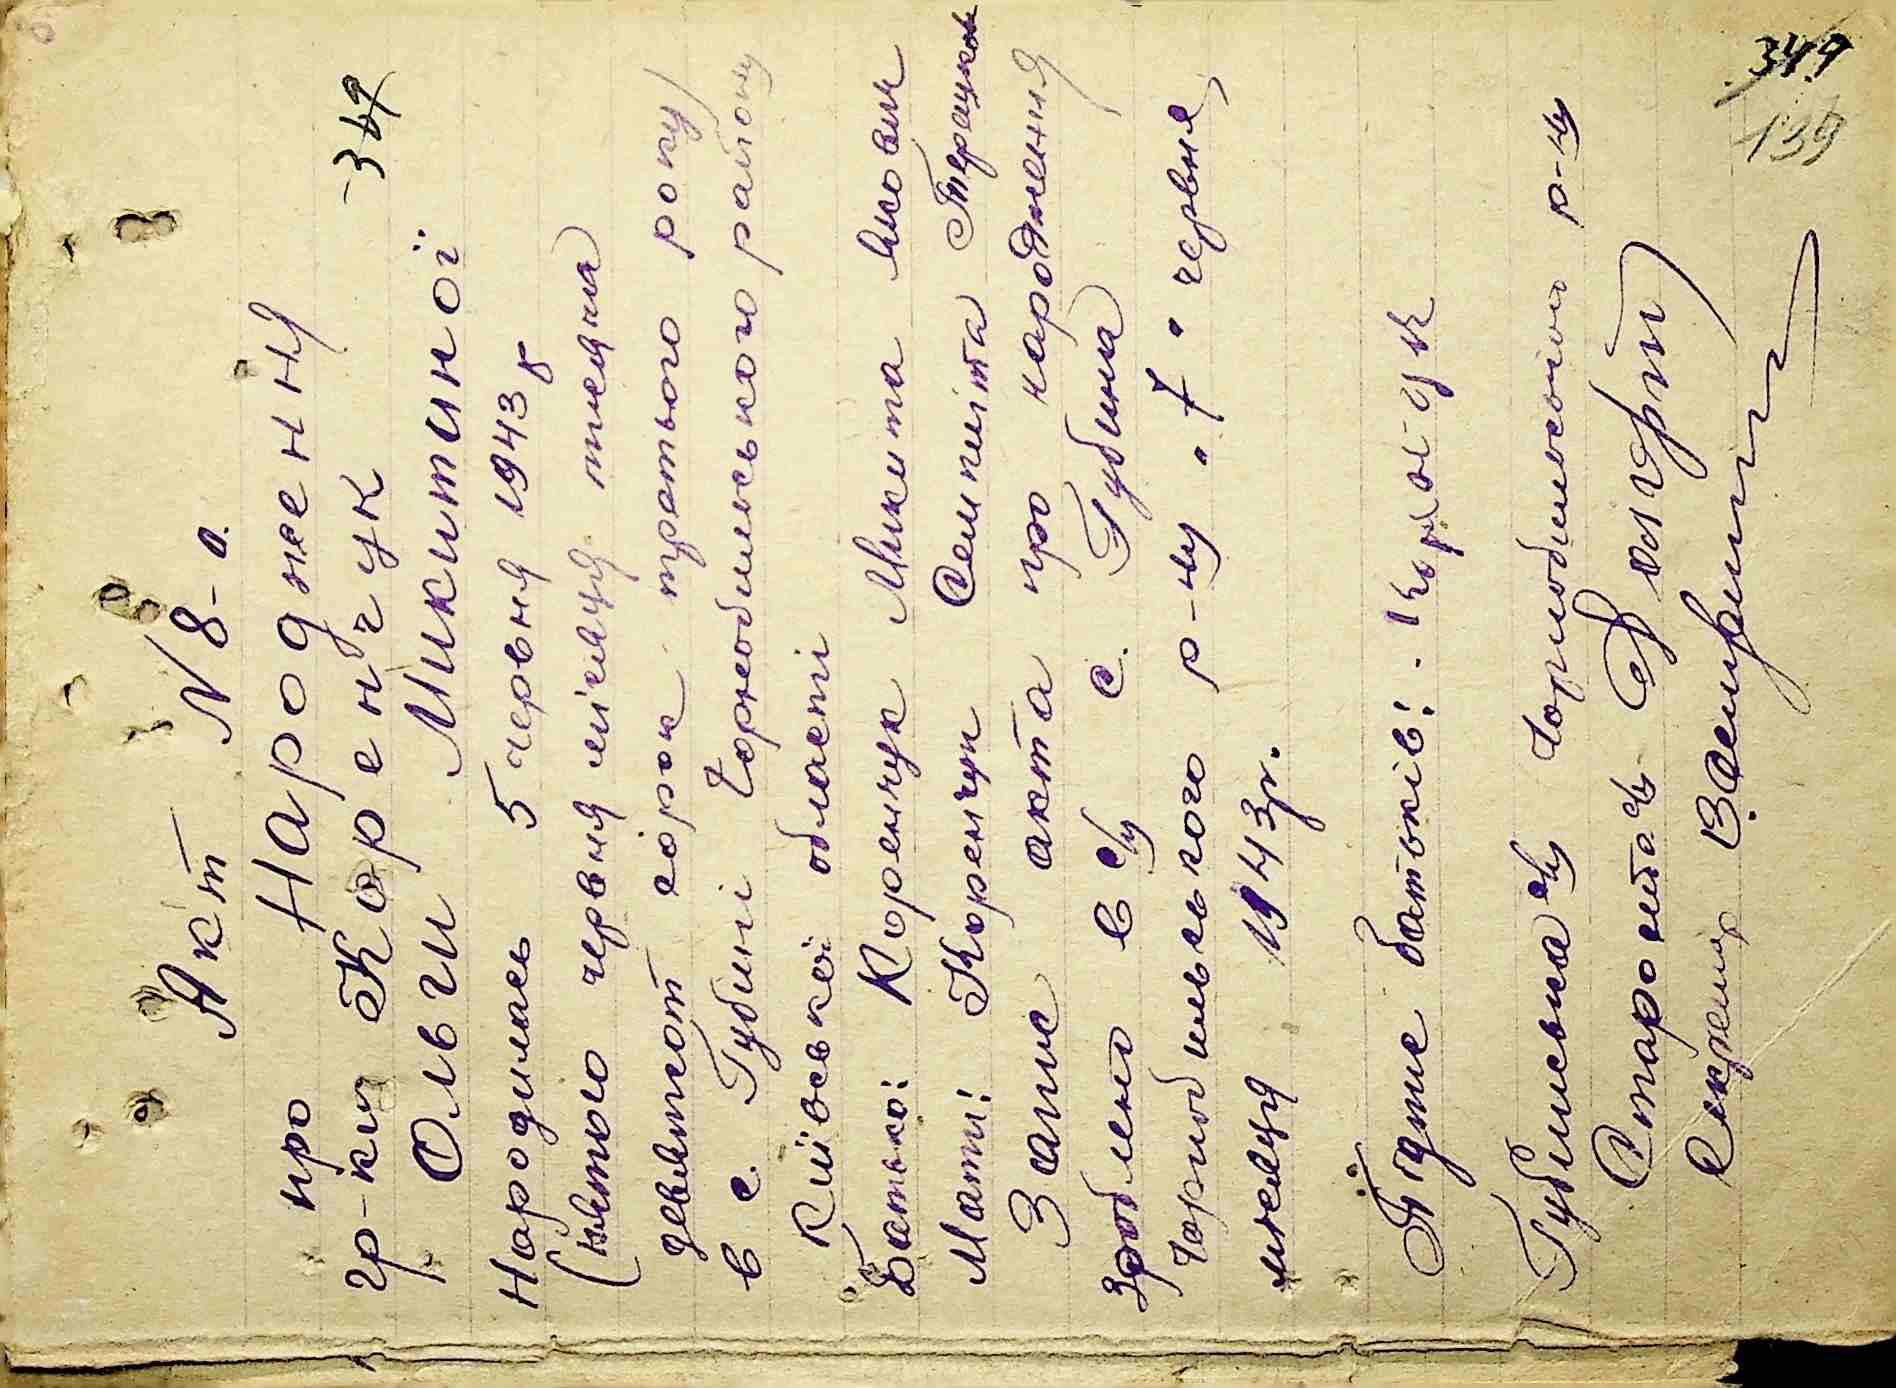 Акт № 8-а.
про Народження
349
гр-ки Коренчук
Ольги Микитиної
Народилась 5 червня 1943 р
(пятого червня місяця тисяча
девятсот сорок третього року)
в с. Губині Чорнобильського району
Київської області
Батько: Коренчук Микита Якович
Маті: Коренчук Семпліта
Запис акта про народження
зроблено в с/у с. Губина
Чорнобильського р-ну „7" червня
місяця 1943 р.
Підпис батьків:
Губинська с/у Чорнобильського р-ну
Староста с/у
Секретар
349
139